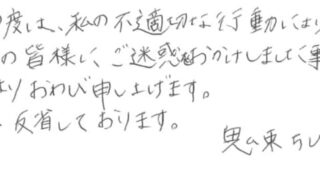 の度は、私の不適切な行動により
の皆様に、ご迷惑をおかけしました事
よりおわび申し上げます。
反省しております。
東ちし